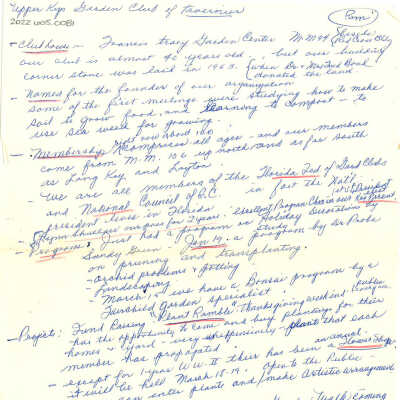 Upper Keys Garden Club of Tavernier
2022.005.0081
Pam
- Clubhouse - Francis Tracy Garden Center M.M 94
our club is almost 40 years old, but our building
corner stone was laid in 1963. (when Dr + Mrs Fred Boal
donated the land
- Named for the founder of our organization
some of the first meetings were studying how to make
soil to grow food, and learning to compost - to
use sea weed for growing.
- Membership encompasses all ages - and our members
come from M.M. 106 up north and as far south
as Long Key and Layton
- we are all members of the Florida Fed of Gard Clubs
and National Council of G.C. in fact the Nat'l
president lives in Florida
- Programs: Just had a program in Holiday decorations by
Sandy Green - Jan 19, a program by Dr Probe
on pruning and transplanting.
- Orchid problems + potting
- Landscaping
- March 15 we have a Bonsai program by a
Fairchild Garden specialist.
- Project: Fund Raising "Plant Ramble" Thanksgiving weekend
has the opportunity to come and buy plantings for their
homes + yard - very inexpensively - plants that each
member has propagated.
- except for 1 year W.W. II there has been an annual Flower Show
it will be held March 18-19. Open to the Public -
can enter plants and/make Artistic arrangement